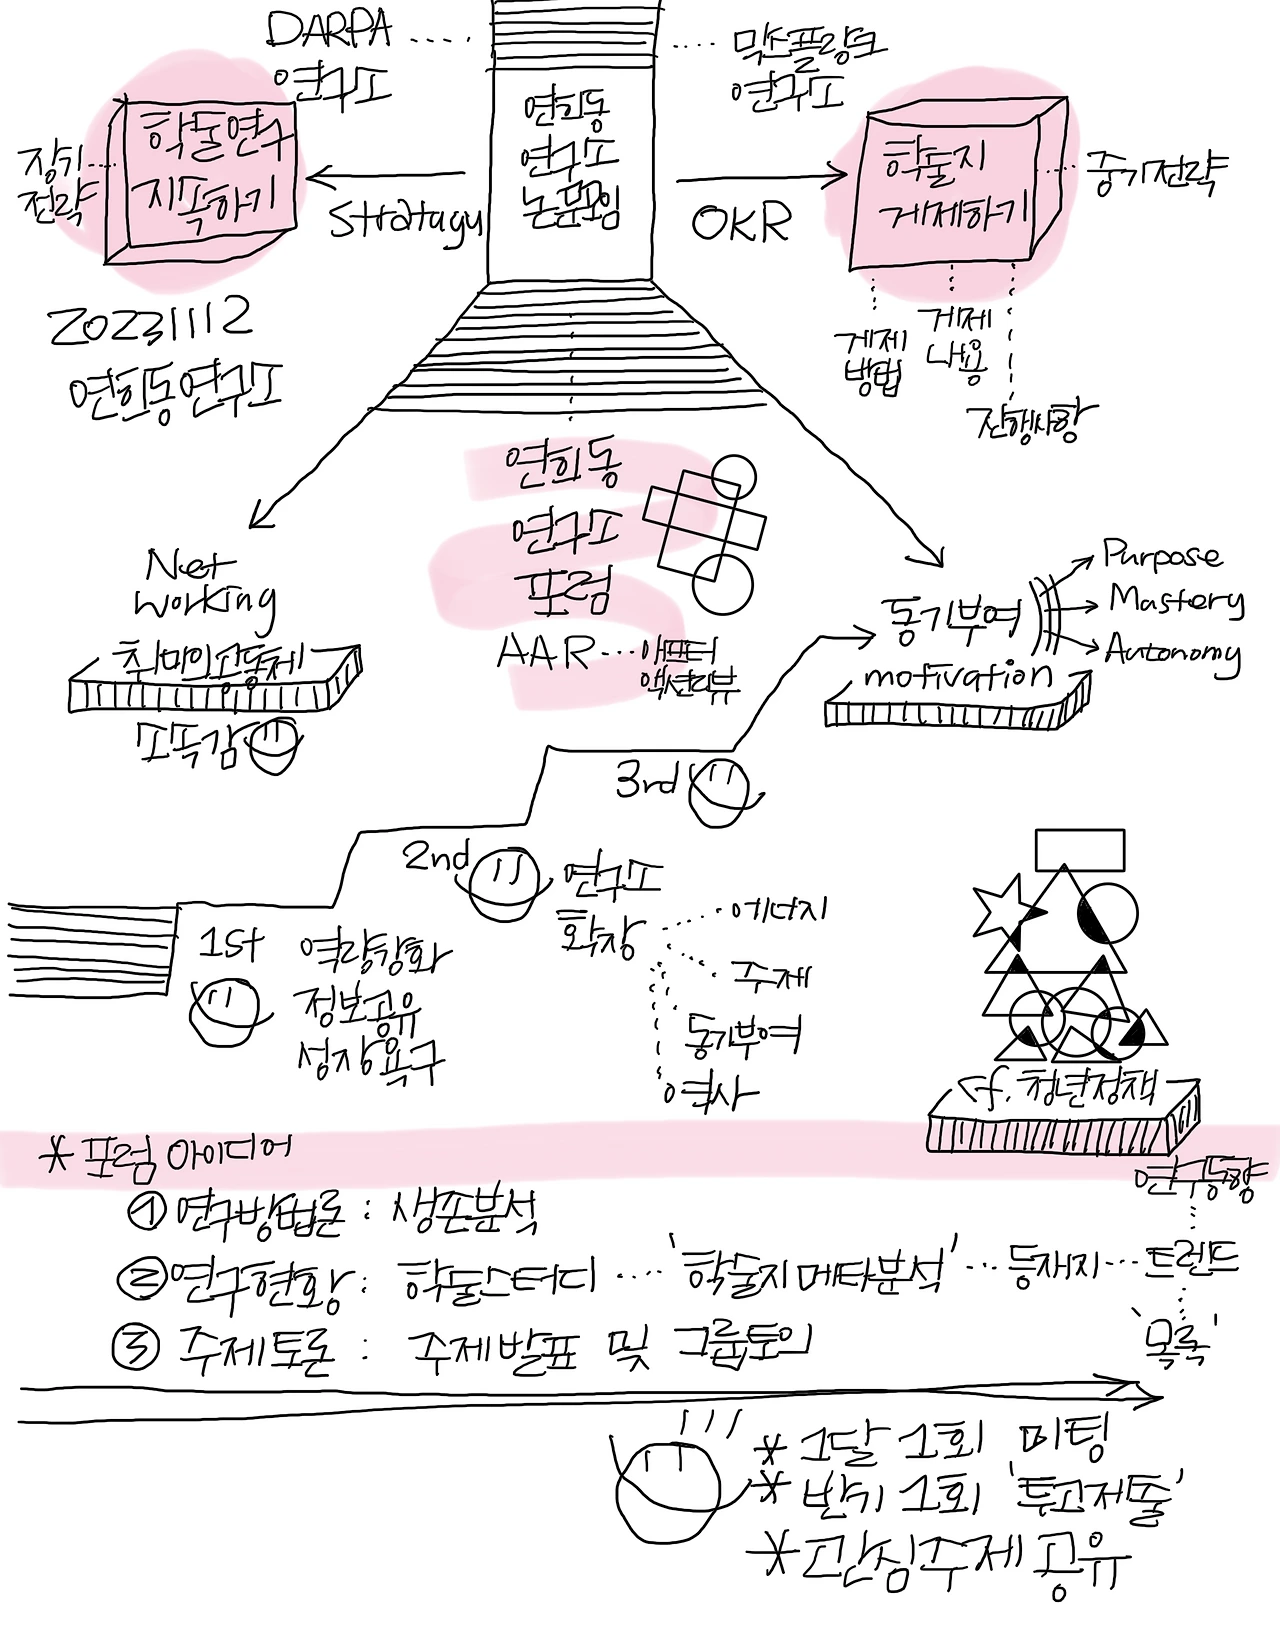 DARPA
연구소
막스플랑크
연구소
연희동
연구소
논문모임
학술연구
지속하기
장기
전략
Stratagy
OKR
학술지
게제하기
중기전략
게제
방법
게제
내용
진행사항
20231112
연희동연구소
연희동
연구소
포럼
AAR
애프터
액션리뷰
Net
working
취미의공동체
소속감
동기부여
motivation
Purpose
Mastery
Autonomy
3rd
2nd
연구소
확장
에너지
주제
동기부여
역사
1st
역량강화
정보공유
성장욕구
cf. 청년정책
* 포럼 아이디어
① 연구방법론 : 생존분석
② 연구현황 : 학술스터디 ···· '학술지메타분석' ··· 등재지 ··· 트렌드
연구동향
'목록'
③ 주제토론 : 주제발표 및 그룹토의
* 1달 1회 미팅
* 반기 1회 '투고제출'
* 관심주제 공유